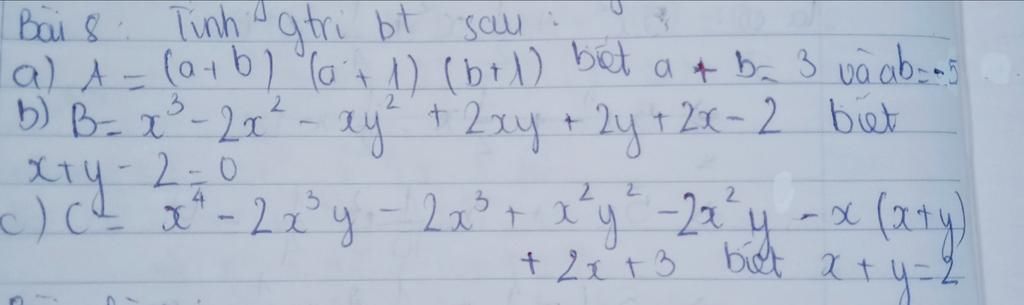 Bài 8: Tính gtri bt sau:
a) A = (a+b) (a+1) (b+1) biết a + b = 3 và ab = -5
b) B = x³ - 2x² - xy² + 2xy + 2y + 2x - 2 biết
x+y - 2 = 0
c) C = x⁴ - 2x³y - 2x³ + x²y² - 2x²y - x (x+y)
+ 2x + 3 biết x + y = 2